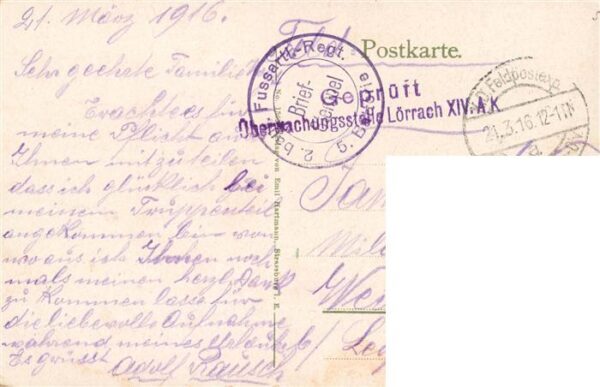 21. März 1916.
Sehr geehrte Familie
Erachte es für
meine Pflicht an
Ihnen mitzuteilen
dass ich glücklich bei
meinem Truppenteil
angekommen bin von
wo aus ich Ihnen noch
mals meinen herzl. Dank
zu kommen lasse für
die liebevolle Aufnahme
während meines Urlaubes
Es grüsst Adolf Rausch
Postkarte.
2. bay. Fussartl.-Regt.
Brief-
stempel
5. Batterie
Geprüft
Überwachungsstelle Lörrach XIV. A.K.
Feldpostexp.
21.3.16. 12-1 N
Verlag von Emil Hartmann, Strassburg i. E.
Fam